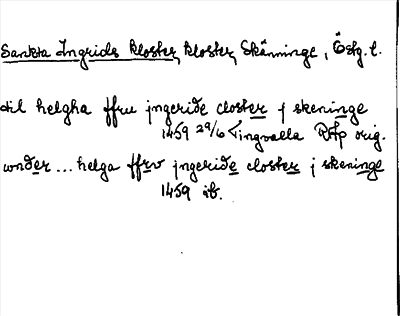 Sankta Ingrids kloster, kloster, Skänninge, Östg. l.
til helgha ffru jngeride closter j skeninge
1459 29/6 Lingvalla RAp orig.
wnder ... helga ffrv jngeride closter j skeninge
1459 ib.